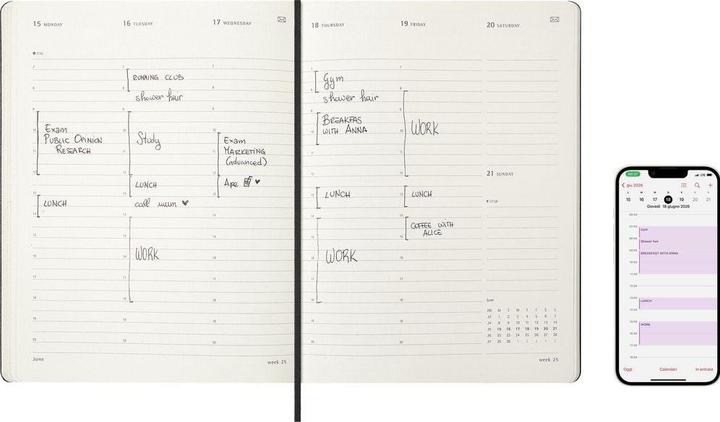 15 MONDAY
16 TUESDAY
17 WEDNESDAY
Exam
PUBLIC OPINION
RESEARCH
LUNCH
RUNNING CLUB
shower hair
Study
LUNCH
call mum
WORK
Exam
MARKETING
(advanced)
Ape
June
week 25
18 THURSDAY
19 FRIDAY
20 SATURDAY
Gym
shower hair
BREAKFAS
WITH ANNA
LUNCH
WORK
WORK
LUNCH
COFFEE WITH
ALICE
21 SUNDAY
June
15 16 17 18 19 20 21
week 25
giu 2026
15 16 17 18 19 20 21
Giovedì 18 giugno 2026
Gym
Shower hair
BREAKFAST WITH ANNA
LUNCH
WORK
Oggi
Calendari
In entrata